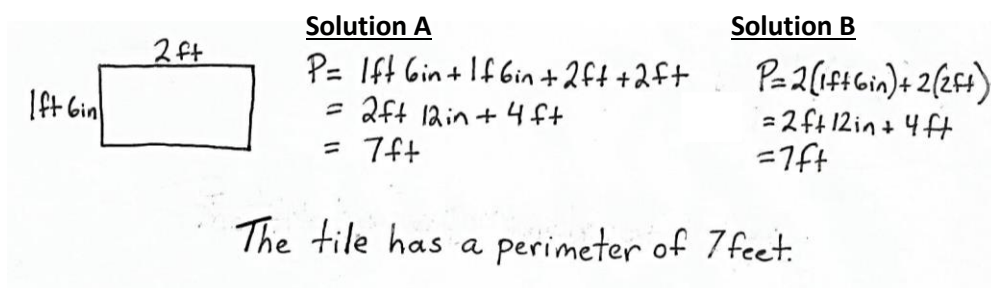 2ft
1ft 6in
Solution A
P= 1ft 6in + 1f 6in + 2ft + 2ft
= 2ft 12in + 4ft
= 7ft
Solution B
P=2(1ft6in)+2(2ft)
=2ft12in+4ft
=7ft
The tile has a perimeter of 7feet.